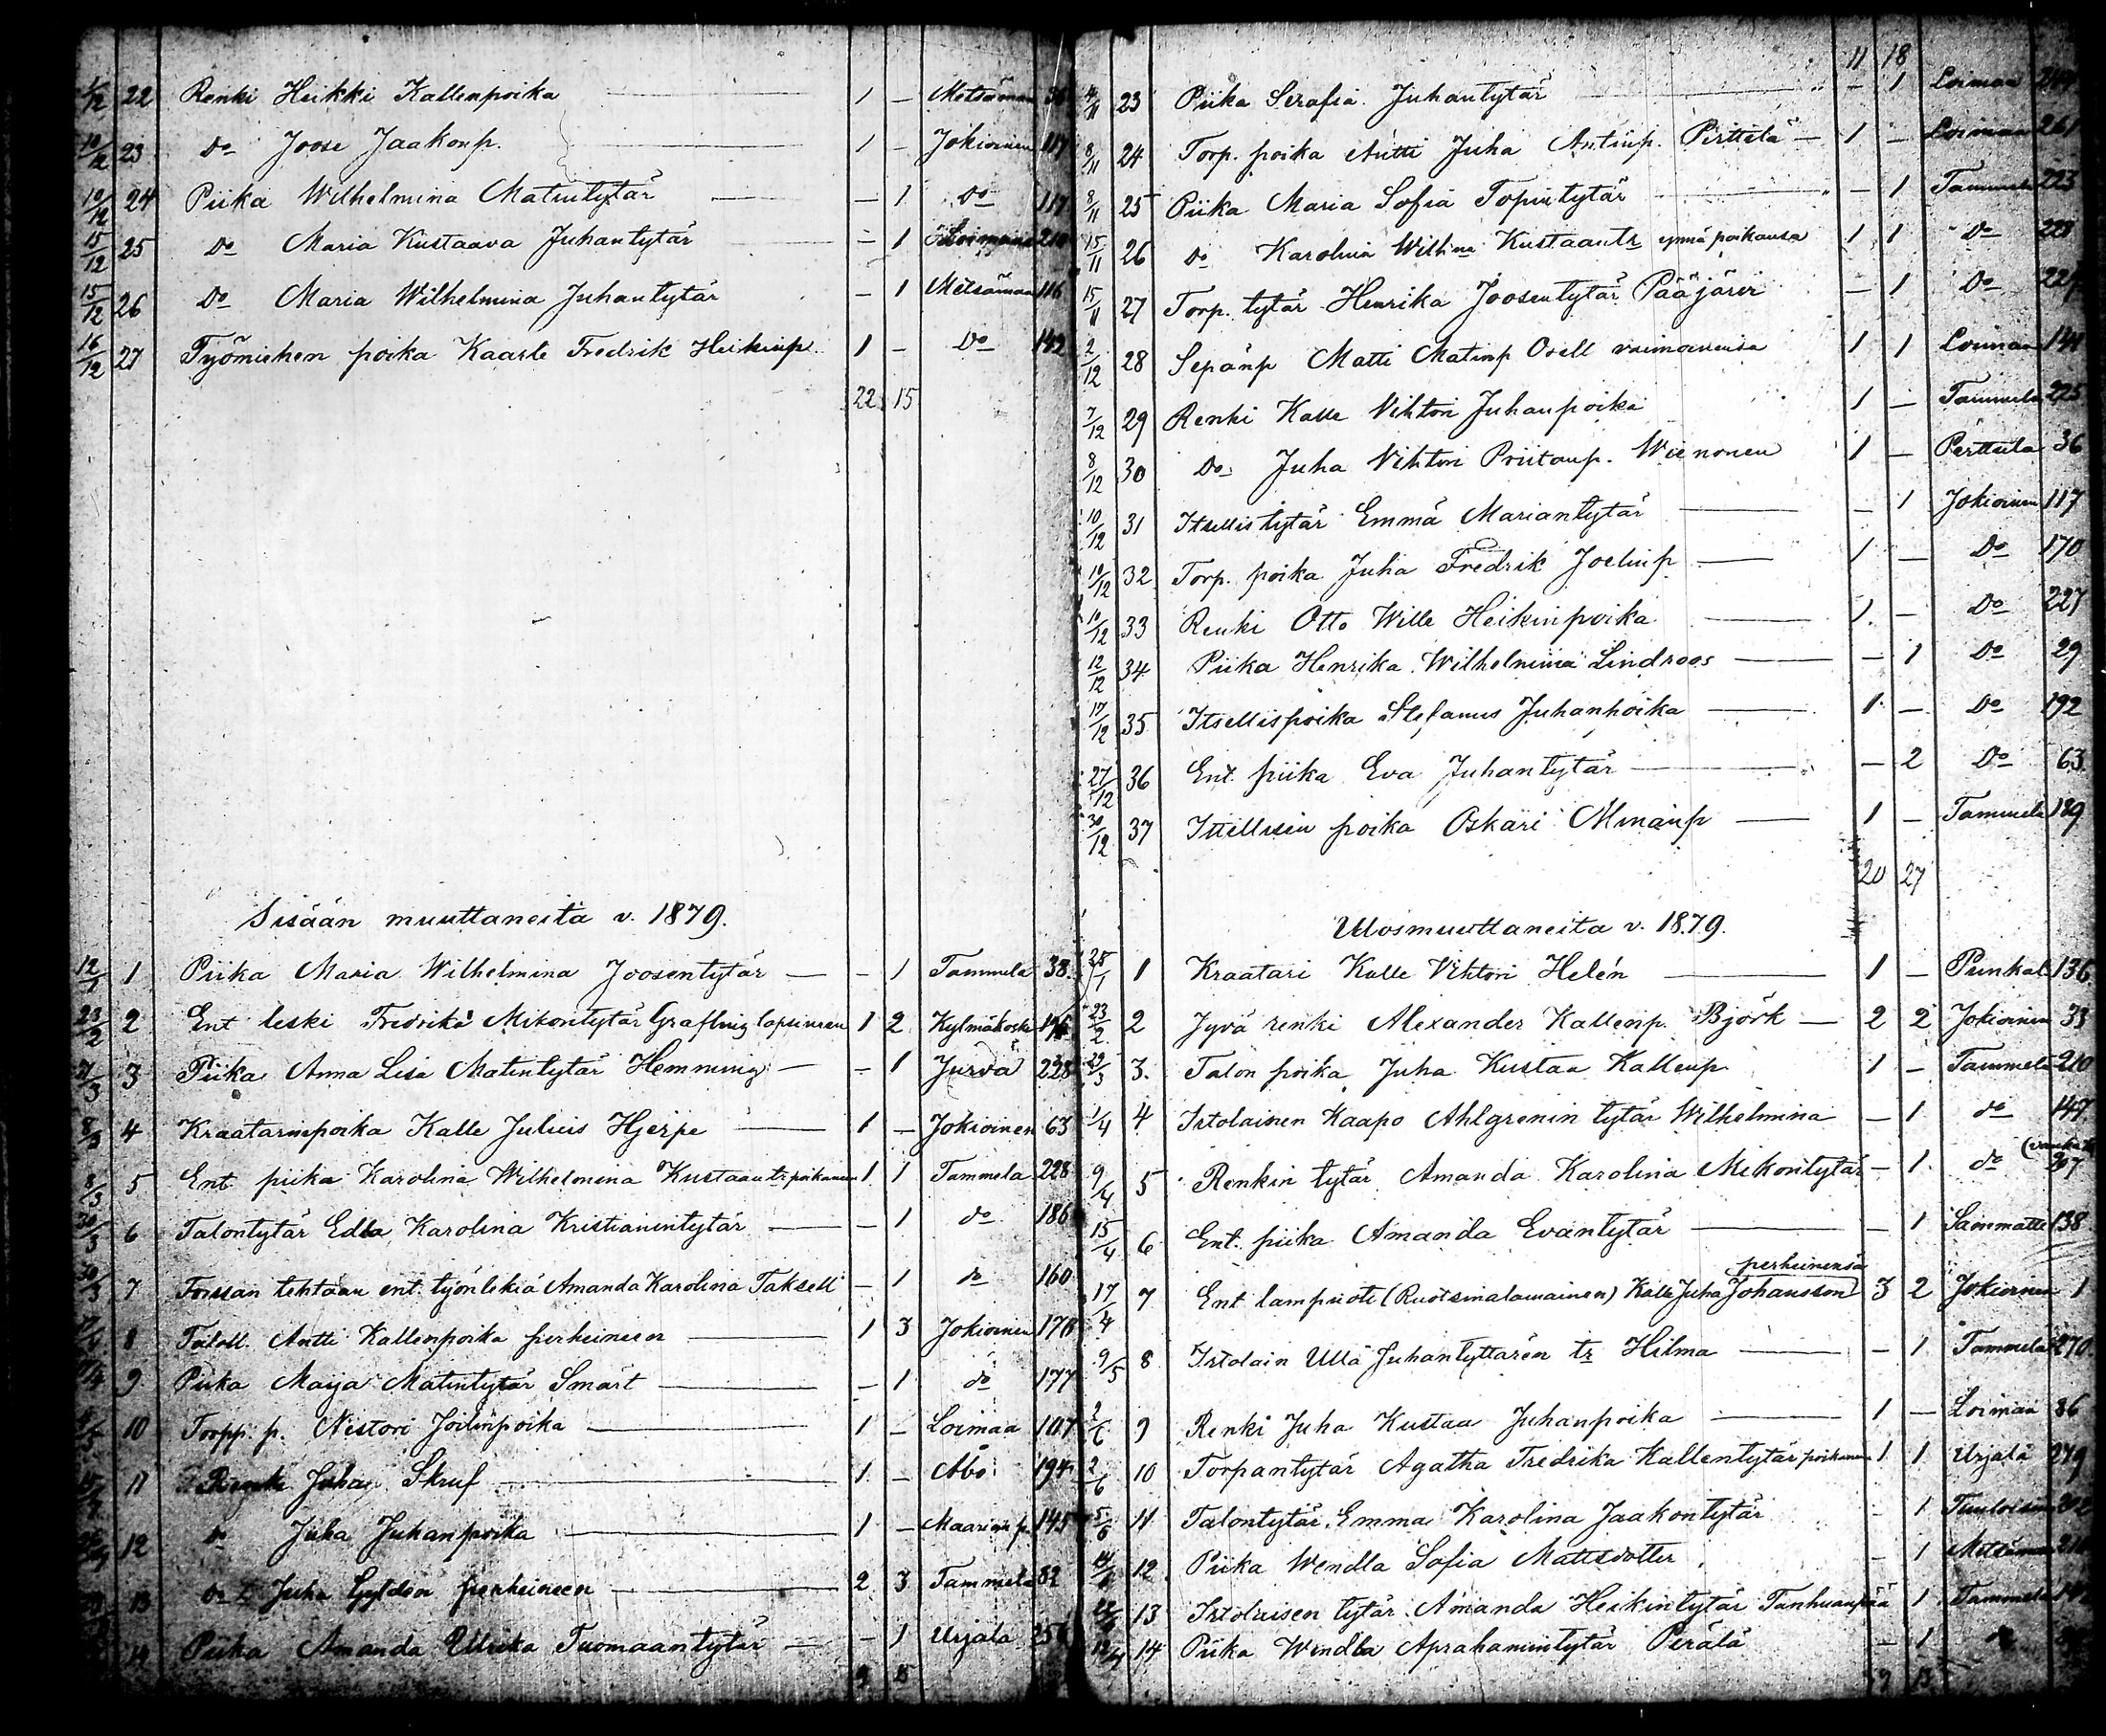 1/12 22 Renki Heikki Kallenpoika — 1 — Metsämaa
10/12 23 Do Joose Jaakonp. — 1 — Jokioinen 117
10/12 24 Piika Wilhelmina Matintytär — — 1 Do 117
15/12 25 Do Maria Kustaava Juhantytär — 1 210
15/12 26 Do Maria Wilhelmina Juhantytär — 1 Metsämaa 116
16/12 27 Työmiehen poika Kaarle Fredrik Heikinp. 1 — Do 142
22 15
Sisään muuttaneita v. 1879.
12/1 1 Piika Maria Wilhelmina Joosentytär — — 1 Tammela 38.
23/2 2 Ent leski Fredrika Mikontytär lapsineen 1 2 Kylmäkoski
7/3 3 Piika Anna Lisa Matintytär Hemming — — 1 Jurva 238
8/3 4 Kraatarinpoika Kalle Julius Hjerpe — 1 — Jokioinen 63
8/3 5 Ent. piika Karolina Wilhelmina Kustaantr poikaneen 1 1 Tammela 228
30/3 6 Talontytär Edla Karolina Kristianintytär — — 1 do 186
30/3 7 Forssan tehtaan ent. työntekiä Amanda Karolina Taksell — 1 do 160
8 Taloll. Antti Kallenpoika perheineen — 1 3 Jokioinen 178
9 Piika Maija Matintytär Smart — — 1 do 177
10 Torpp. p. Nestori Joilinpoika — 1 — Loimaa 107
11 Renki Juha Skruf — 1 — Åbo 194
12 do Juha Juhanpoika — 1 — Maarian p. 145
13 do Juha Gylden perheineen — 2 3 Tammela 82
14 Piika Amanda Ulrika Tuomaantytär — — 1 Urjala
11 18
4/11 23 Piika Serafia Juhantytär — — 1 Loimaa
8/11 24 Torp. poika Antti Juha Antinp. Pirttilä — 1 — Loimaa 261
8/11 25 Piika Maria Sofia Topiantytär — — 1 Tammela 223
15/11 26 Do Karolina Wilh:na Kustaantr ynnä poikansa 1 1 Do 228
15/11 27 Torp. tytär Henrika Joosentytär Pääjärvi — 1 Do
2/12 28 Sepänp Matti Matinp Orell vaimoineensa 1 1 Loimaa 144
7/12 29 Renki Kalle Vihtori Juhanpoika 1 — Tammela 225
8/12 30 Do Juha Vihtori Priitanp. Wienonen 1 — Perttula 36
10/12 31 Itsellistytär Emma Mariantytär — — 1 Jokioinen 117
10/12 32 Torp. poika Juha Fredrik Joelinp — 1 — Do 170
10/12 33 Renki Otto Wille Heikinpoika — 1 — Do 227
12/12 34 Piika Henrika Wilhelmina Lindroos — — 1 Do 29
17/12 35 Itsellispoika Stefanus Juhanpoika — 1 — Do 192
27/12 36 Ent. piika Eva Juhantytär — — 2 Do 63
30/12 37 Itsellisen poika Oskari Minanp — 1 — Tammela 189
20 27
Ulosmuuttaneita v. 1879.
25/1 1 Kraatari Kalle Vihtori Helén — 1 — Punkal. 136
23/2 2 Jyvä renki Alexander Kallenp. Björk — 2 2 Jokioinen 33
29/3 3. Talon poika Juha Kustaa Kallenp. 1 — Tammela 210
1/4 4 Istolainen Kaapo Ahlgrenin tytär Wilhelmina — 1 do 147
9/4 5 Renkin tytär Amanda Karolina Mikontytär — 1 do
15/4 6 Ent. piika Amanda Evantytär — — 1 Sammatti 138
perheinensä
17/4 7 Ent lampuoti (Ruotsinalamainen) Kalle Juha Johansson 3 2 Jokioinen 1
9/5 8 Istolain Ulla Juhantyttären tr Hilma — — 1 Tammela 270
2/6 9 Renki Juha Kustaa Juhanpoika — 1 — Loimaa 36
2/6 10 Torpantytär Agatha Fredrika Kallentytär poikaneen 1 1 Urjala 279
5/6 11 Talontytär Emma Karolina Jaakontytär — 1
12 Piika Wendla Sofia Mattsdotter — 1 Metsämaa
13 Istolaisen tytär Amanda Heikintytär Tanhuanpää 1 Tammela
14 Piika Wendla Aprahamintytär Perälä — 1